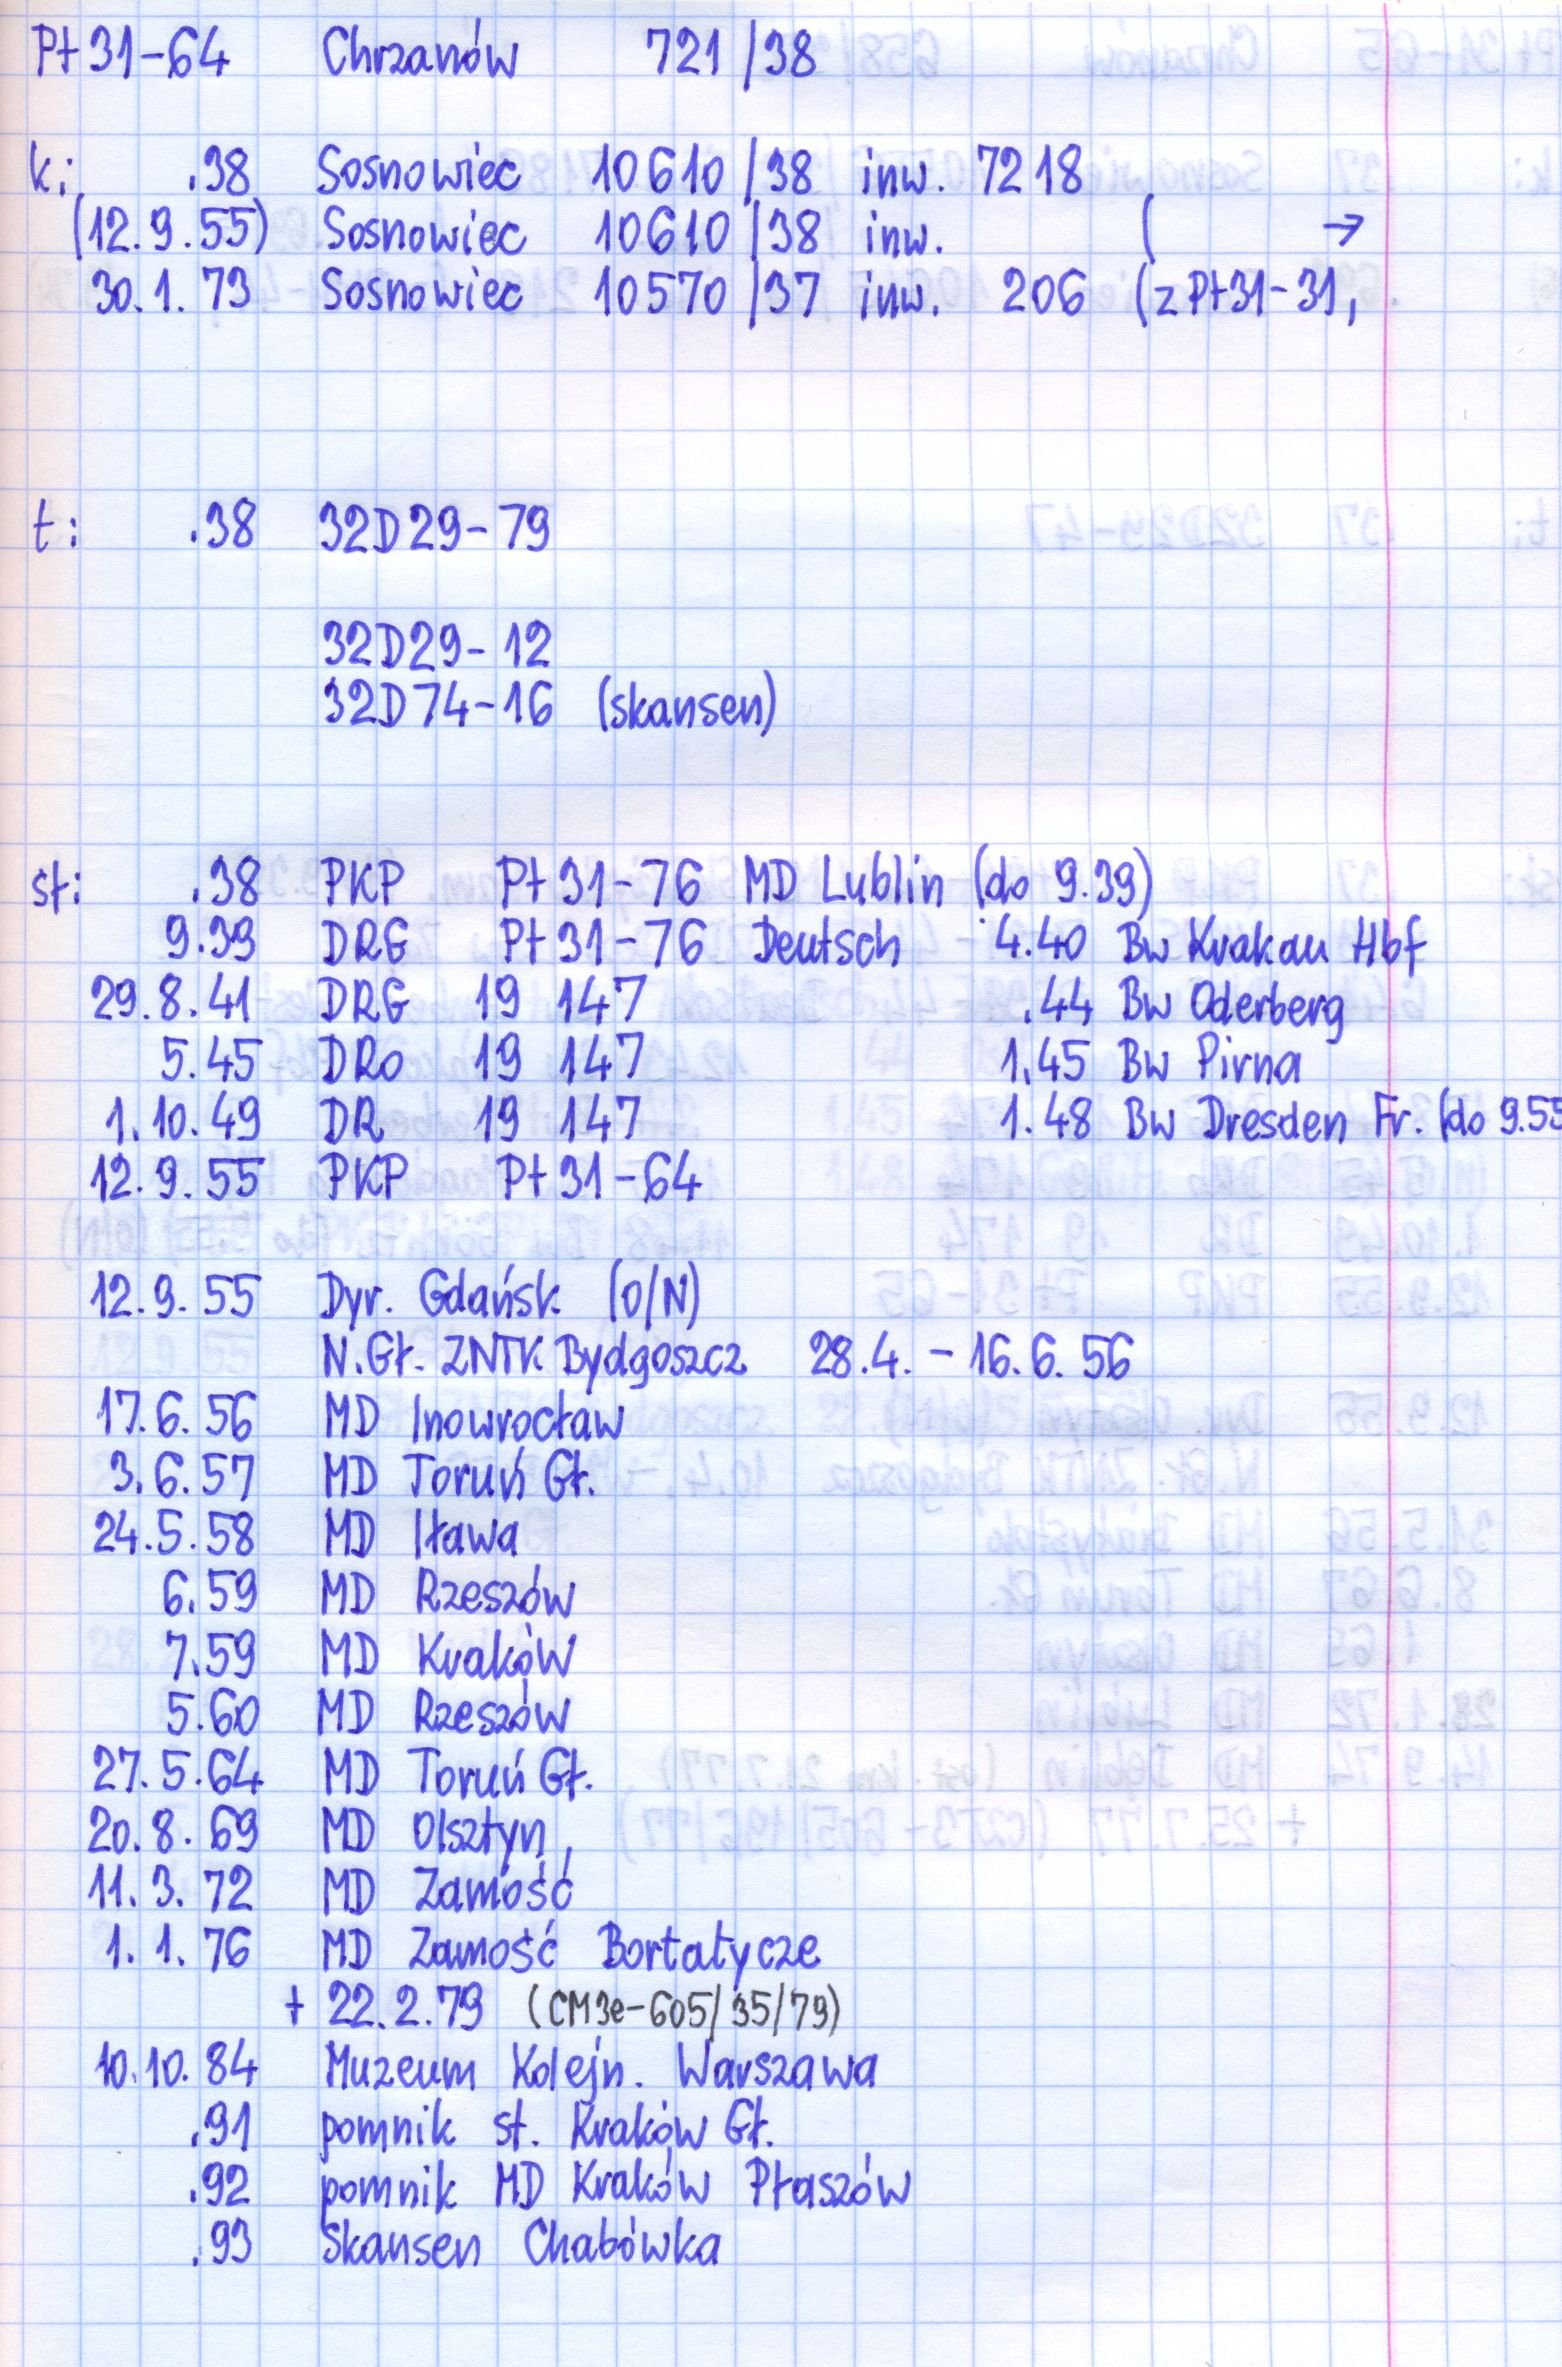 Pt31-64 Chrzanów 721/38
k: .38 Sosnowiec 10610/38 inw. 7218
(12.9.55) Sosnowiec 10610/38 inw. ( →
30.1.73 Sosnowiec 10570/37 inw. 206 (z Pt31-31,
t: .38 32D29-79
32D29-12
32D74-16 (skansen)
st: .38 PKP Pt31-76 MD Lublin (do 9.39)
9.39 DRG Pt31-76 Deutsch 4.40 Bw Krakau Hbf
29.8.41 DRG 19 147 .44 Bw Oderberg
5.45 DRo 19 147 1.45 Bw Pirna
1.10.49 DR 19 147 1.48 Bw Dresden Fr. (do 9.55
12.9.55 PKP Pt31-64
12.9.55 Dyr. Gdańsk (O/N)
N.Gł. ZNTK Bydgoszcz 28.4. - 16.6.56
17.6.56 MD Inowrocław
3.6.57 MD Toruń Gł.
24.5.58 MD Iława
6.59 MD Rzeszów
7.59 MD Kraków
5.60 MD Rzeszów
27.5.64 MD Toruń Gł.
20.8.69 MD Olsztyn
11.3.72 MD Zamość
1.1.76 MD Zamość Bortatycze
+ 22.2.79 (CM3e-605/35/79)
10.10.84 Muzeum Kolejn. Warszawa
.91 pomnik st. Kraków Gł.
.92 pomnik MD Kraków Płaszów
.93 Skansen Chabówka